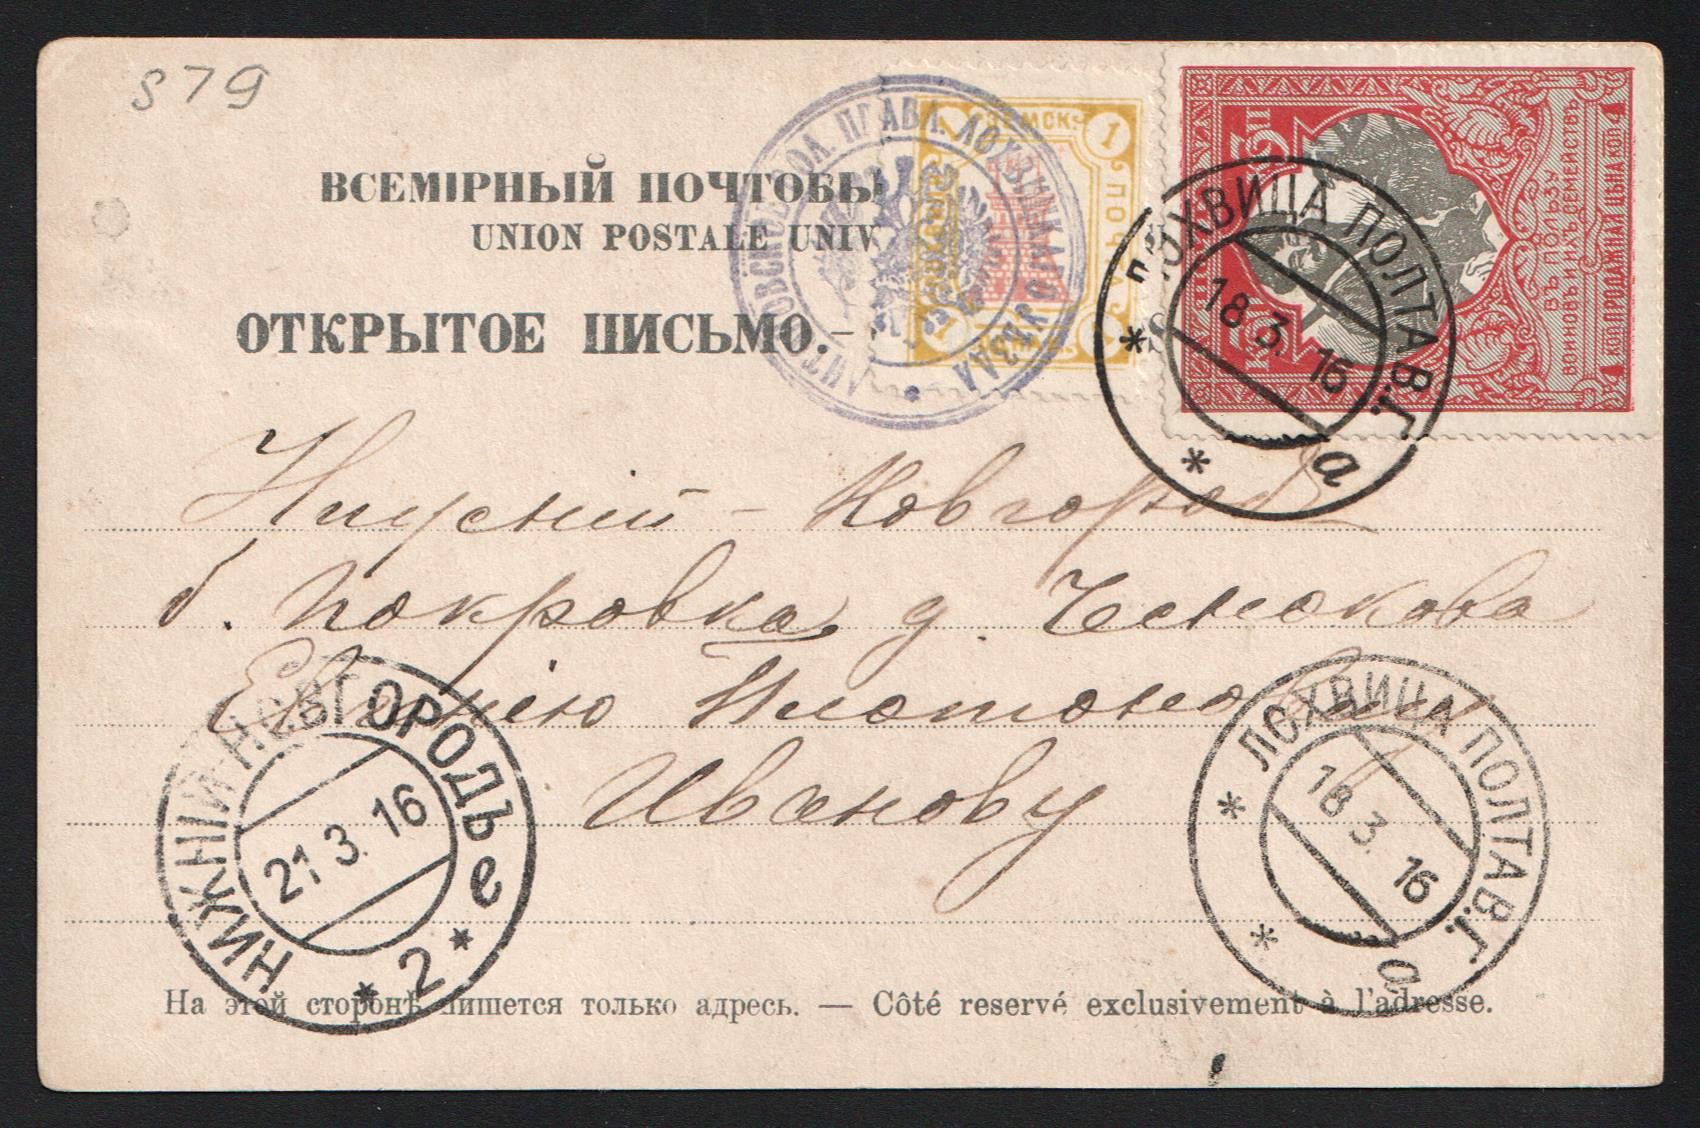 579
ВСЕМІРНЫЙ ПОЧТОВЫ
UNION POSTALE UNIV
ОТКРЫТОЕ ПИСЬМО. –
ПРАВЛ. ЛОХВИЦКАГО УѢЗДА
ЗЕМСК.
1
1
ПОЧТА
ВЪ ПОЛЬЗУ
ВОИНОВЪ И ИХЪ СЕМЕЙСТВЪ
ПРОДАЖНАЯ ЦѢНА КОП. 4
ЛОХВИЦА ПОЛТАВ.Г.
18 3. 16
а
Нижній - Новгород
б. Покровка д. Чеснокова
Евгенію Платонович
Иванову
НИЖНІЙ-НОВГОРОДЪ
21 3. 16
е
* 2 *
ЛОХВИЦА ПОЛТАВ.Г.
18 3. 16
а
На этой сторонѣ пишется только адресъ. — Côté reservé exclusivement à l'adresse.